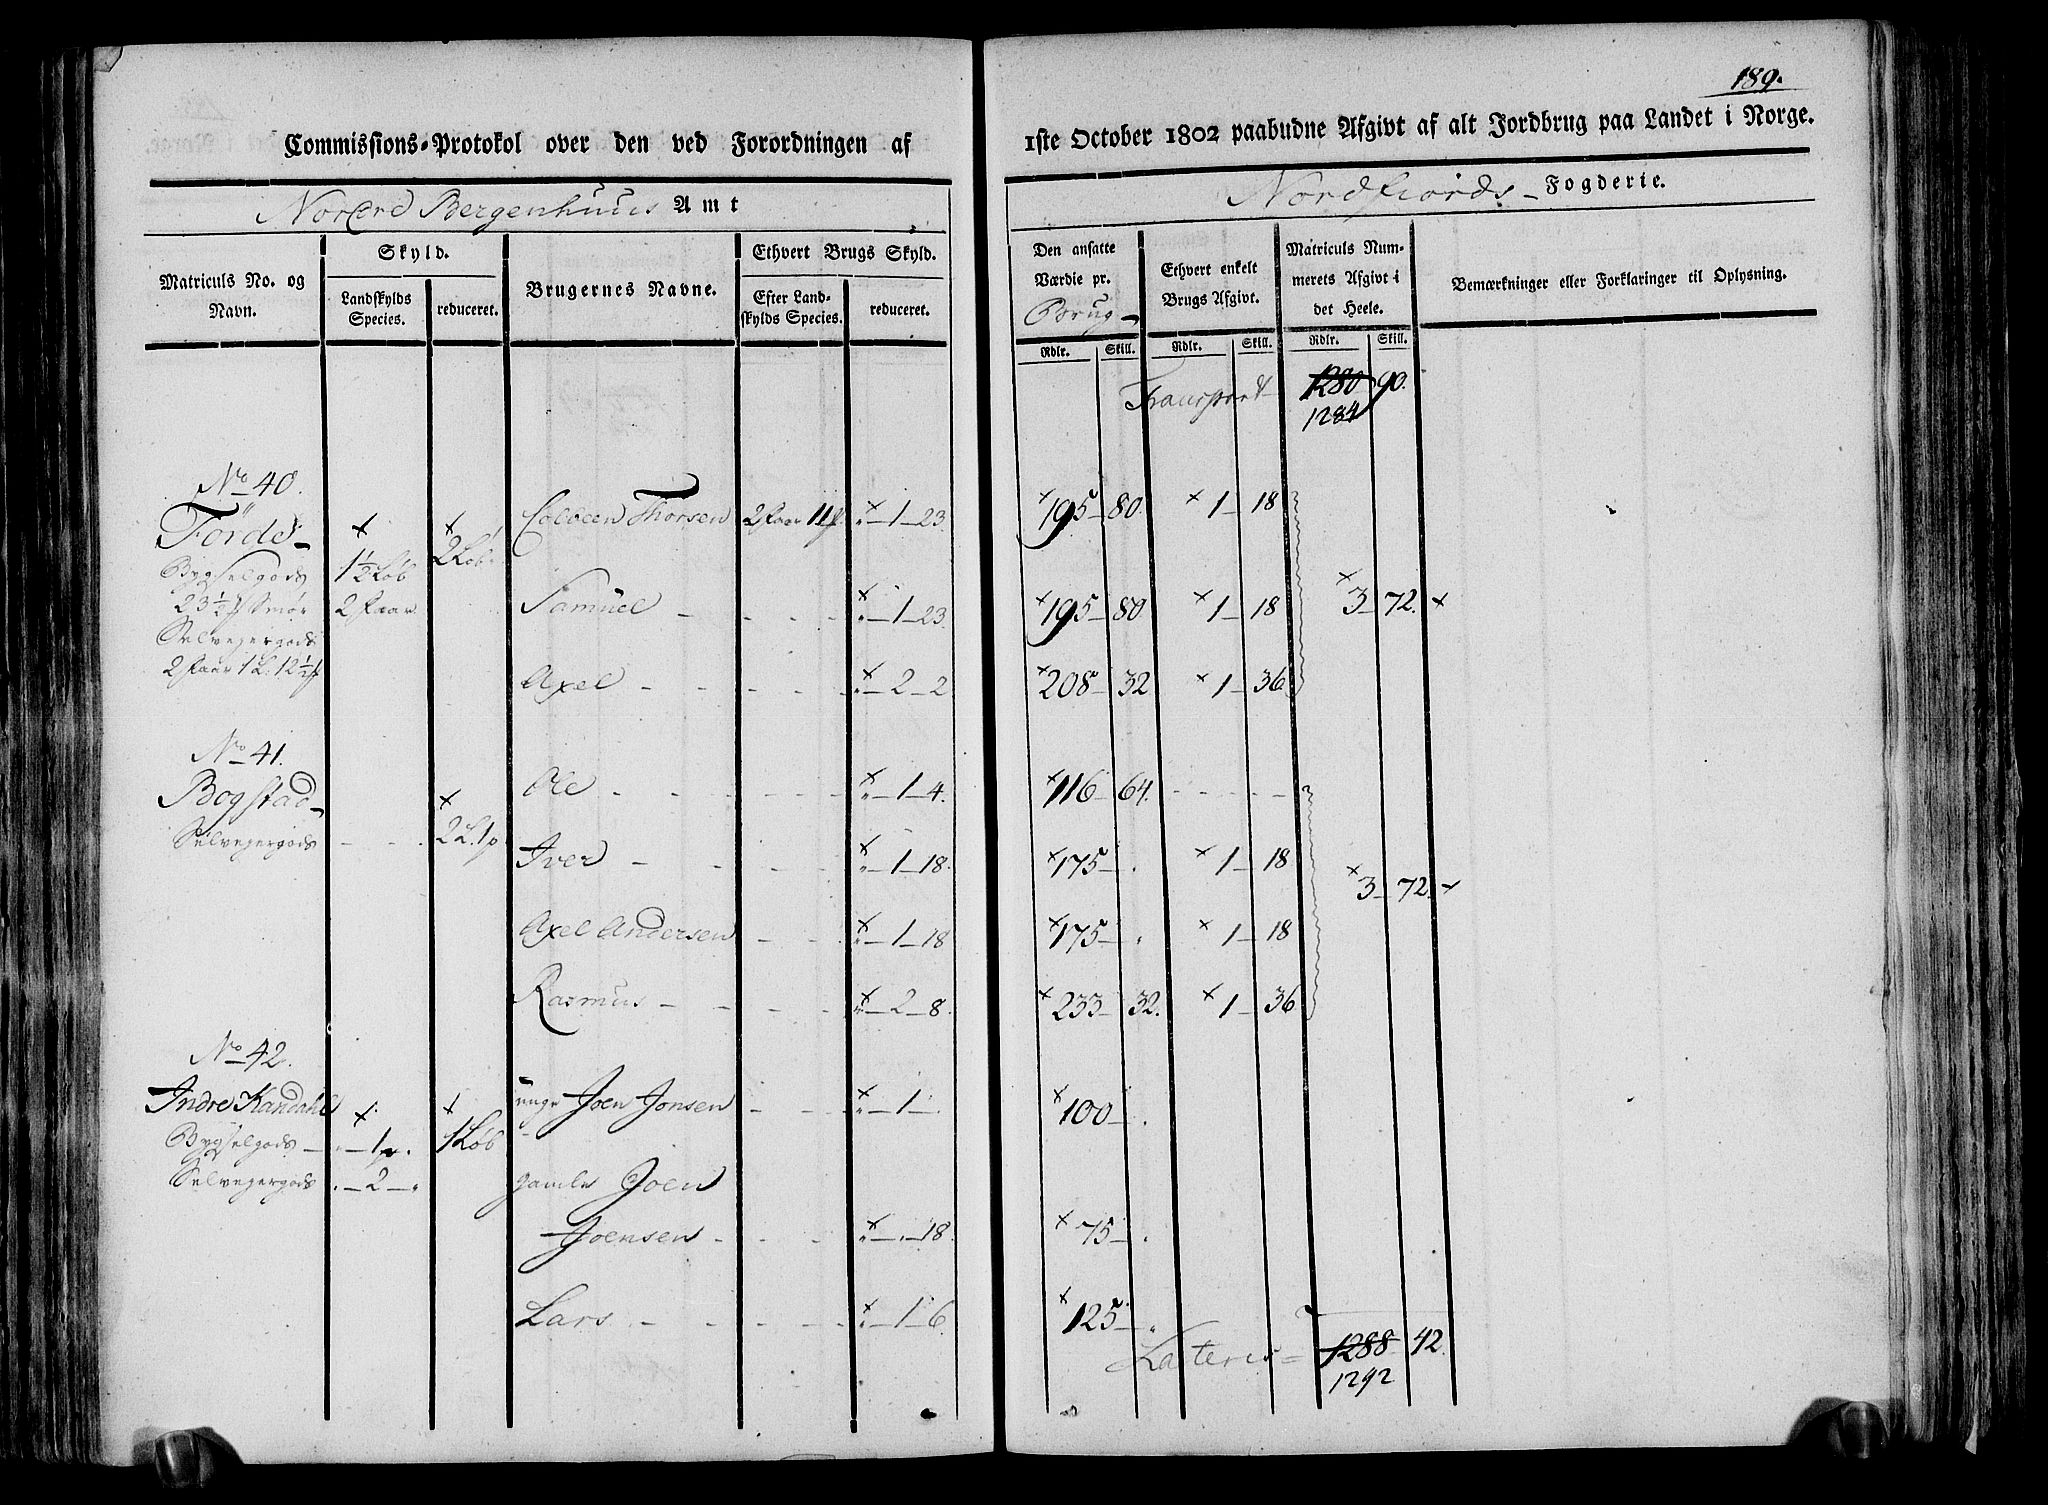 189.
Commissions-Protokol over den ved Forordningen af 1ste October 1802 paabudne Afgivt af alt Jordbrug paa Landet i Norge.
Nordre Bergenhuus Amt
Nordfiords Fogderie.
Matriculs No. og Navn.
Skyld.
Landskylds Species.
reduceret.
Brugernes Navne.
Ethvert Brugs Skyld.
Efter Landskylds Species.
reduceret.
Den ansatte Værdie pr. Brug
Ethvert enkelt Brugs Afgivt.
Matriculs Nummerets Afgivt i det Heele.
Bemærkninger eller Forklaringer til Oplysning.
Rdlr. Skill. Rdlr. Skill. Rdlr. Skill.
Transport 1280 90.
1284
No 40.
Förde
Bygselgods
23 1/2 Smör
Selveyergods
2 Faar 1 L. 12 1/2
x 1 1/2 Löb
2 Faar
x 2 Löb
Colbeen Thorsen 2 Faar 11 x " 1 23. x 195 80. x 1 18
Samuel - - - - x " 1 23. x 195 80 x 1 18 x 3 72. x
Axel - - - - - x " 2 2 x 208 32 x 1 36.
No 41.
Bogstad
Selveyergods - - - x 2 L. 1 p
Ole - - - - - - x " 1 4. x 116 64. - - - - -
Iver - - - - - x " 1 18. x 175 . x 1 18
x 3 72. x
Axel Andersen - - - x " 1 18 x 175 " x 1 18
Rasmus - - - - x " 2 8. x 233 32. x 1 36
No 42.
Indre Kandahl
Bygselgods x " 1 p.
Selveyergods " 2 "
x 1 Löb
unge Joen Jonsen - - - x " 1 . x 100 .
gamle Joen
Joensen - - - - x " . 18. x 75 .
Lars - - - - - x " 1 6. x 125 "
Lateris 1288 42.
1292